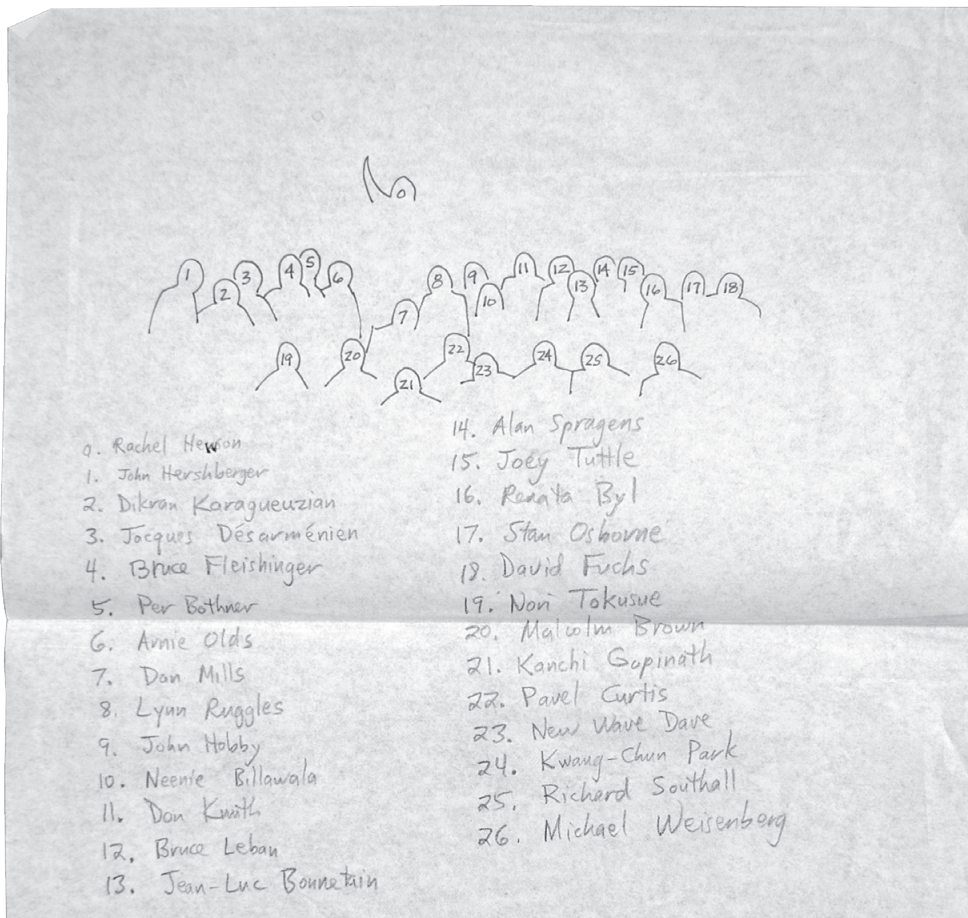 0
1
2
3
4
5
6
7
8
9
10
11
12
13
14
15
16
17
18
19
20
21
22
23
24
25
26
0. Rachel Hewson
1. John Hershberger
2. Dikran Karagueuzian
3. Jacques Désarménien
4. Bruce Fleishinger
5. Per Bothner
6. Arnie Olds
7. Dan Mills
8. Lynn Ruggles
9. John Hobby
10. Neenie Billawala
11. Don Knuth
12. Bruce Leban
13. Jean-Luc Bonnetain
14. Alan Spragens
15. Joey Tuttle
16. Renata Byl
17. Stan Osborne
18. David Fuchs
19. Nori Tokusue
20. Malcolm Brown
21. Kanchi Gopinath
22. Pavel Curtis
23. New Wave Dave
24. Kwang-Chun Park
25. Richard Southall
26. Michael Weisenberg